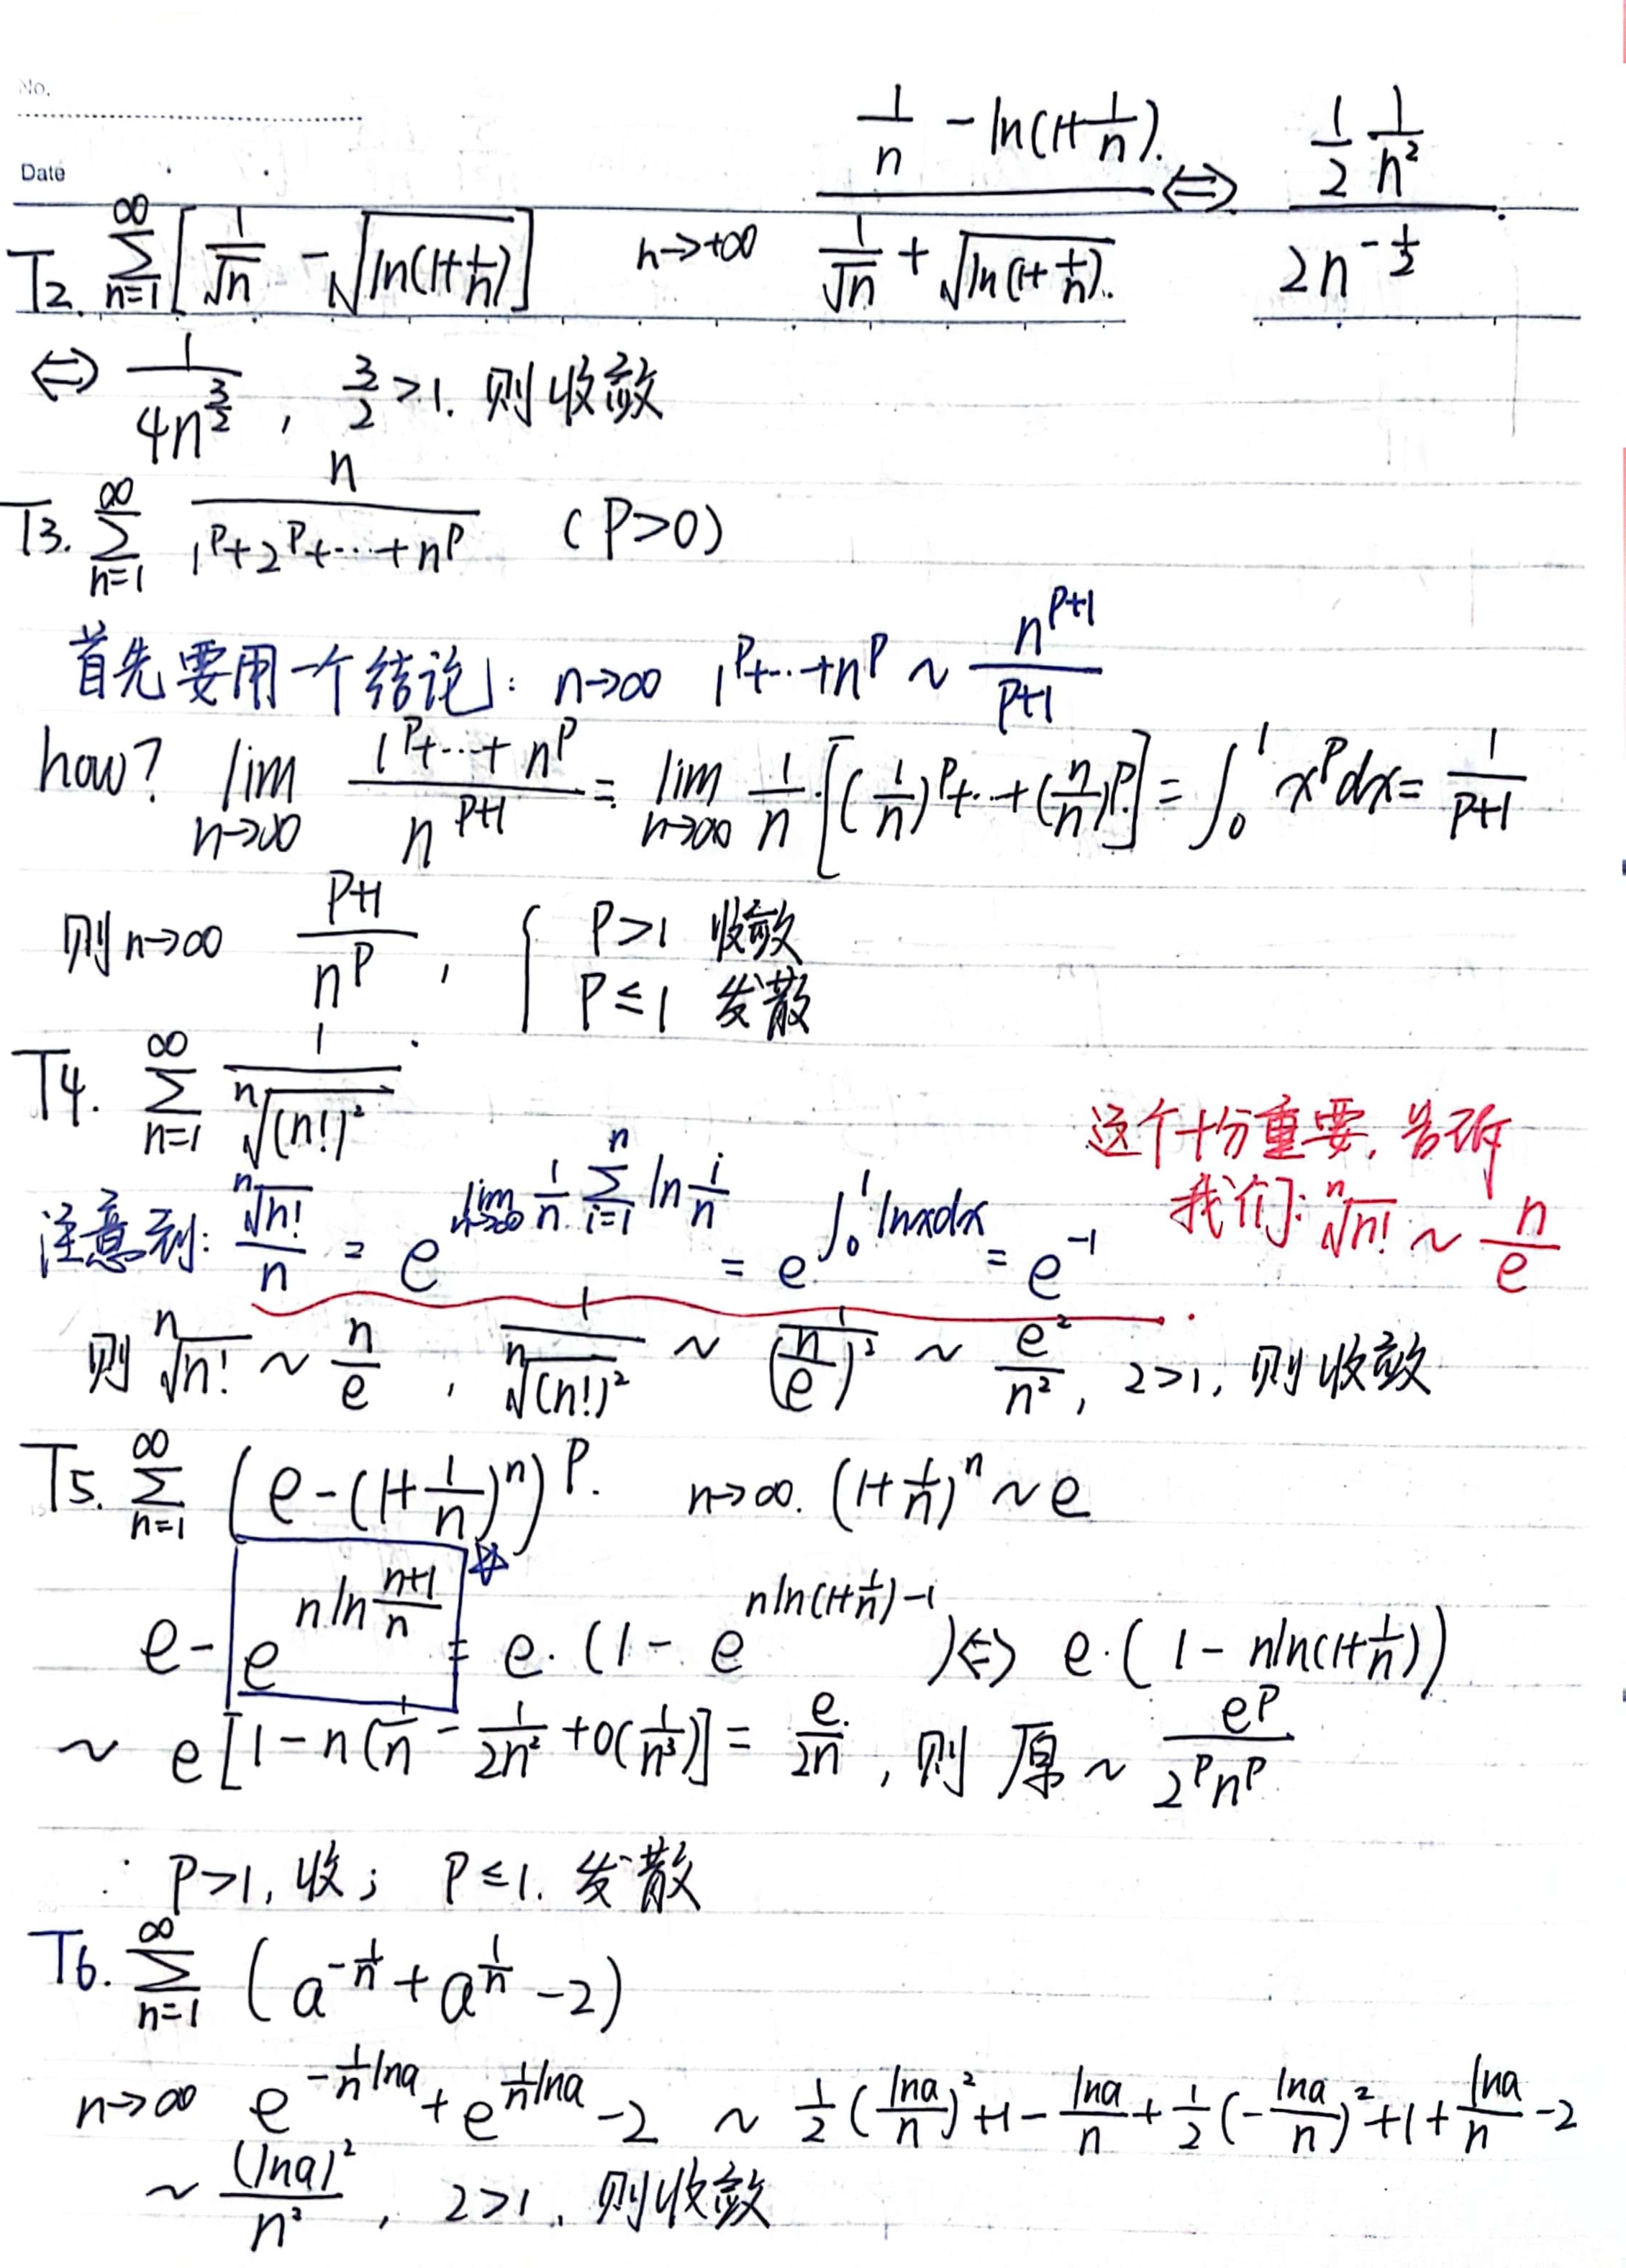 No.
Date
T2. $\sum_{n=1}^{\infty}\left[\frac{1}{\sqrt{n}} - \sqrt{\ln(1+\frac{1}{n})}\right]$ $n\to+\infty$ $\frac{\frac{1}{n} - \ln(1+\frac{1}{n}).}{\frac{1}{\sqrt{n}} + \sqrt{\ln(1+\frac{1}{n})}.}$ ⇔ $\frac{\frac{1}{2}\frac{1}{n^2}}{2n^{-\frac{1}{2}}}$
⇔ $\frac{1}{4n^{\frac{3}{2}}}$, $\frac{3}{2}>1$. 则收敛
T3. $\sum_{n=1}^{\infty} \frac{n}{1^p+2^p+\cdots+n^p}$ (P>0)
首先要用一个结论: $n\to\infty$ $1^p+\cdots+n^p \sim \frac{n^{p+1}}{p+1}$
how? $\lim_{n\to\infty} \frac{1^p+\cdots+n^p}{n^{p+1}} = \lim_{n\to\infty} \frac{1}{n}\cdot\left[(\frac{1}{n})^p+\cdots+(\frac{n}{n})^p\right] = \int_0^1 x^p dx = \frac{1}{p+1}$
则 $n\to\infty$ $\frac{p+1}{n^p}$, { P>1 收敛
P≤1 发散
T4. $\sum_{n=1}^{\infty} \frac{1}{\sqrt[n]{(n!)^2}}$
这个十分重要, 告诉
我们: $\sqrt[n]{n!} \sim \frac{n}{e}$
注意到: $\frac{\sqrt[n]{n!}}{n} = e^{\lim_{n\to\infty}\frac{1}{n}\sum_{i=1}^{n}\ln\frac{i}{n}} = e^{\int_0^1 \ln x dx} = e^{-1}$
则 $\sqrt[n]{n!} \sim \frac{n}{e}$, $\frac{1}{\sqrt[n]{(n!)^2}} \sim \frac{1}{(\frac{n}{e})^2} \sim \frac{e^2}{n^2}$, 2>1, 则收敛
T5. $\sum_{n=1}^{\infty} \left(e-(1+\frac{1}{n})^n\right)^p$. $n\to\infty$. $(1+\frac{1}{n})^n \sim e$
$e - e^{n\ln\frac{n+1}{n}} = e\cdot(1 - e^{n\ln(1+\frac{1}{n})-1})$ ⇔ $e\cdot(1 - n\ln(1+\frac{1}{n}))$
$\sim e\left[1-n(\frac{1}{n} - \frac{1}{2n^2} + o(\frac{1}{n^3})\right] = \frac{e}{2n}$, 则 原 ~ $\frac{e^p}{2^p n^p}$
∴ P>1, 收; P≤1. 发散
T6. $\sum_{n=1}^{\infty} (a^{-\frac{1}{n}} + a^{\frac{1}{n}} - 2)$
$n\to\infty$ $e^{-\frac{1}{n}\ln a} + e^{\frac{1}{n}\ln a} - 2 \sim \frac{1}{2}(\frac{\ln a}{n})^2+1-\frac{\ln a}{n}+\frac{1}{2}(-\frac{\ln a}{n})^2+1+\frac{\ln a}{n}-2$
$\sim \frac{(\ln a)^2}{n^2}$, 2>1, 则收敛